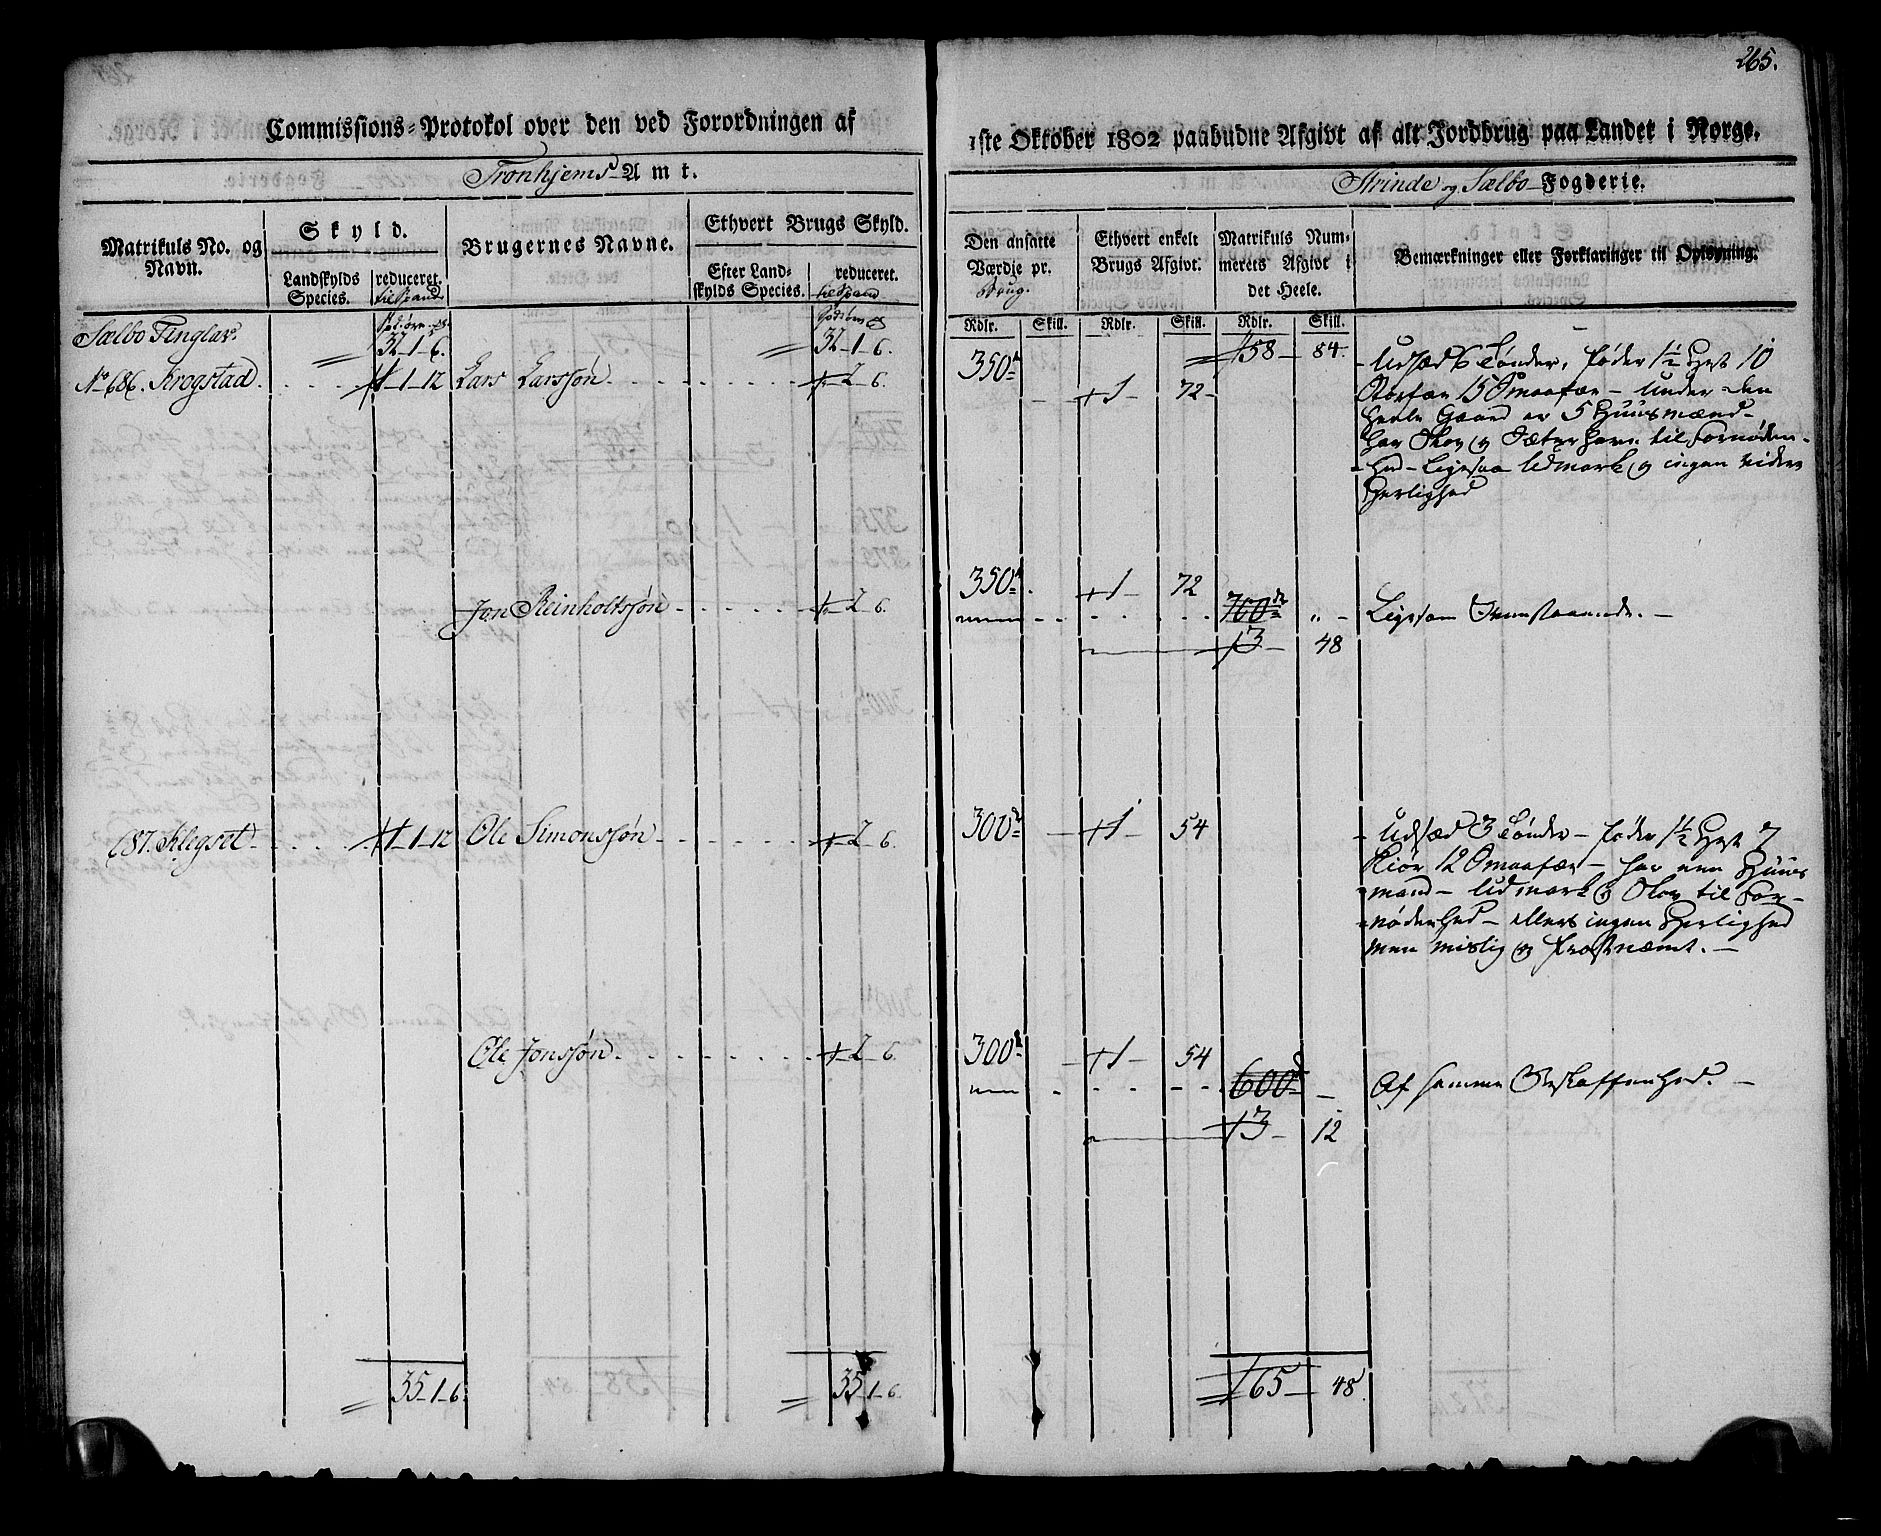 265.
Commissions-Protokol over den ved Forordningen af
1ste Oktober 1802 paabudne Afgivt af alt Jordbrug paa Landet i Norge.
Tronhjems Amt.
Strinde og Sælbo Fogderie.
Matrikuls No. og Navn.
Skyld.
Landskylds Species.
reduceret.
Brugernes Navne.
Ethvert Brugs Skyld.
Efter Landskylds Species.
reduceret.
Den ansatte Værdje pr. Brug.
Ethvert enkelt Brugs Afgivt.
Matrikuls Nummerets Afgivt i det Heele.
Bemærkninger eller Forklaringer til Oplysning.
Rdlr. Skill. Rdlr. Skill. Rdlr. Skill.
Sælbo Tinglav. 32-1-6. 32-1-6. 158-84.
No 686. Krogstad 1-1-12 Lars Larssøn 2-6. 350 1-72-
Udsæd 6 Tønder, føder 1½ Hest 10
Storfæe 15 Smaafæe - Under den
Heele Gaard er 5 Huusmænd-
har Skov og Sæter havn til Fornøden-
hed - Ligesaa Udmark og ingen videre
Herlighed
Jon Reinholtssøn 2-6. 350 1-72
700 Ligesom Ovenstaaende. -
3-48
687. Klegset 1-1-12 Ole Simonssøn 2-6. 300 1-54
Udsæd 3 Tønder - føder 1½ Hest 7
Kiør 12 Smaafæe - har een Huus
mand - Udmark og Skov til For-
nødenhed - ellers ingen Herlighed
men mislig og frostnæmt. -
Ole Jonssøn 2-6. 300 1-54
600 Af samme Beskaffenhed. -
3-12
35-1-6. 35-1-6. 165-48.